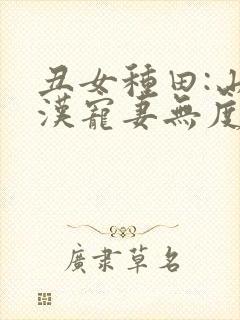 丑女種田:山
漢寵妻無度
廣隶草名